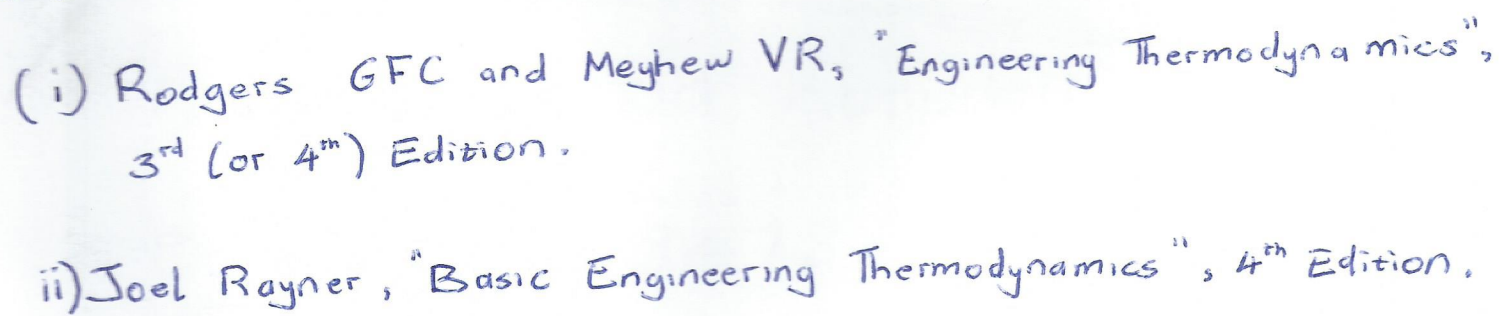 (i) Rodgers GFC and Meyhew VR, "Engineering Thermodynamics",
3rd (or 4th) Edition.
ii) Joel Rayner, "Basic Engineering Thermodynamics", 4th Edition.